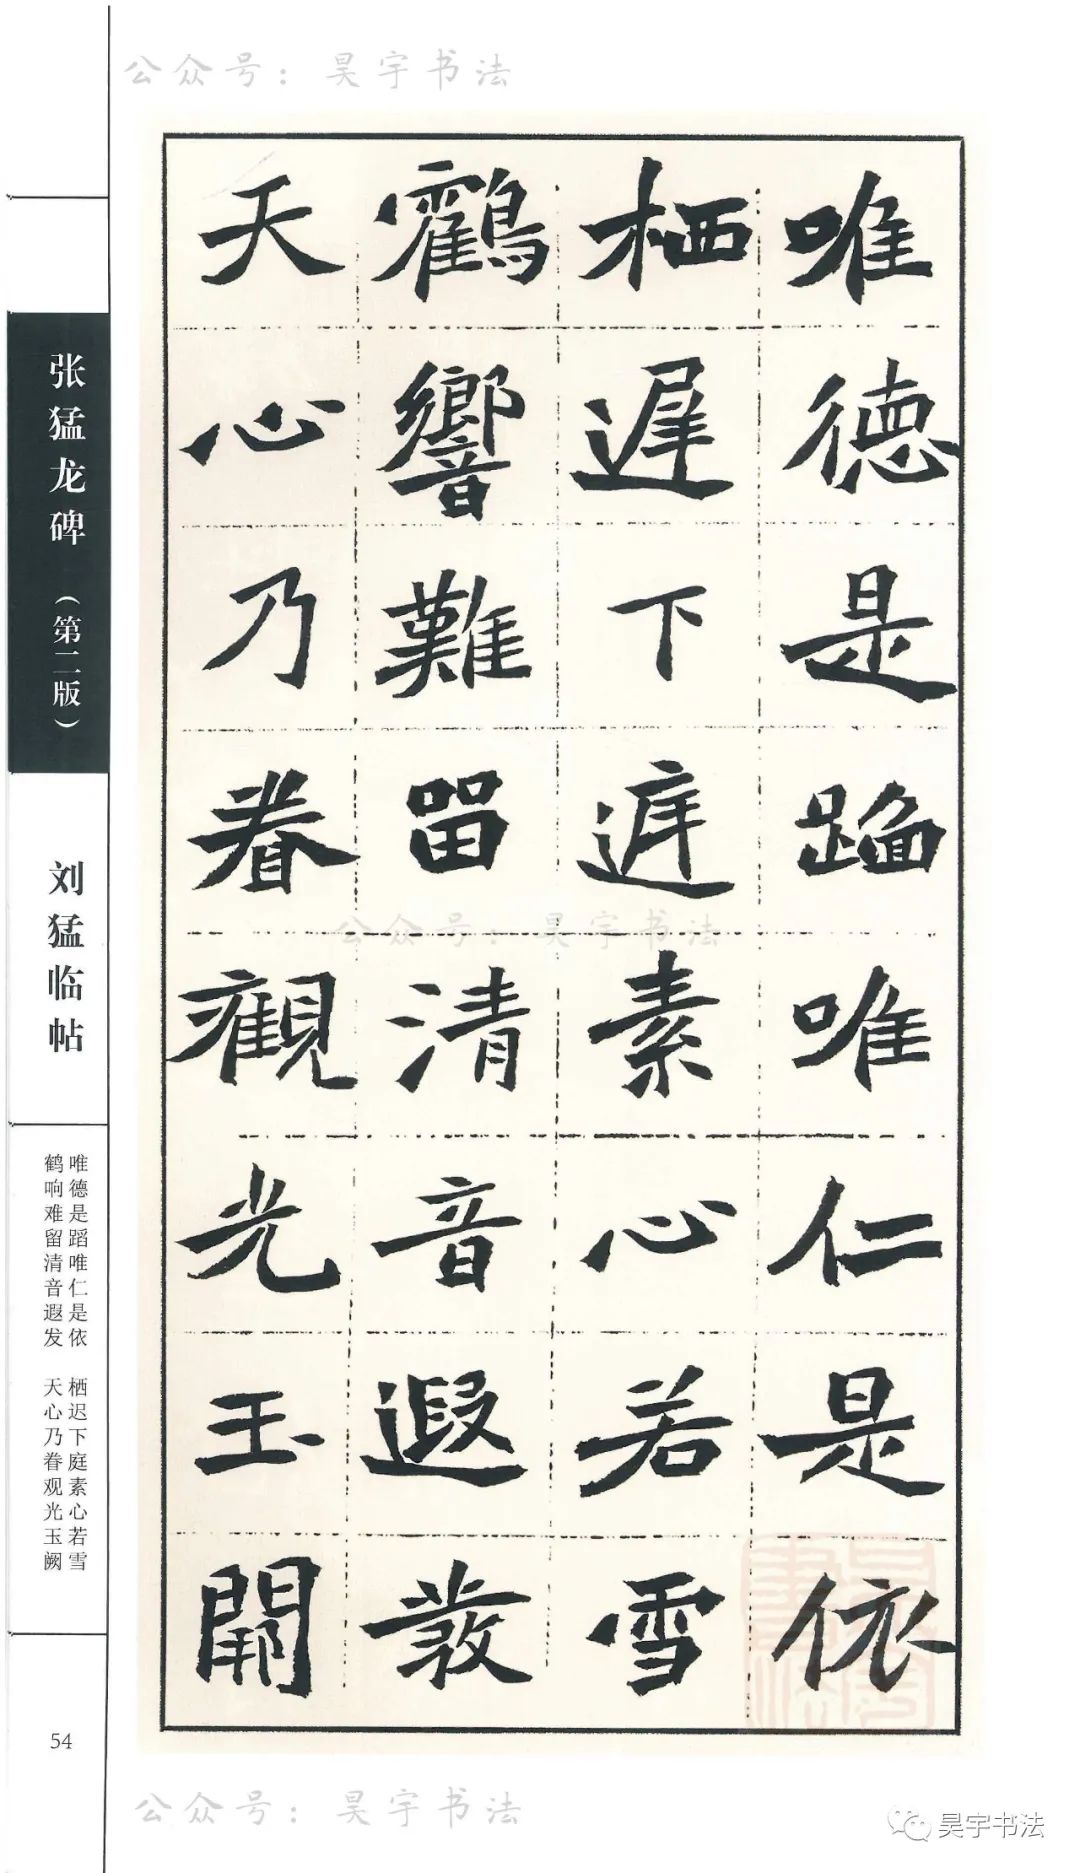 公众号：昊宇书法
唯德是蹈唯仁是依
栖遲下遲素心若雪
鸖響難留清音遐發
天心乃眷觀光玉闕
公众号：昊宇书法
张猛龙碑（第二版）
刘猛临帖
唯德是蹈唯仁是依 栖迟下庭素心若雪
鹤响难留清音遐发 天心乃眷观光玉阙
54
公众号：昊宇书法
昊宇书法